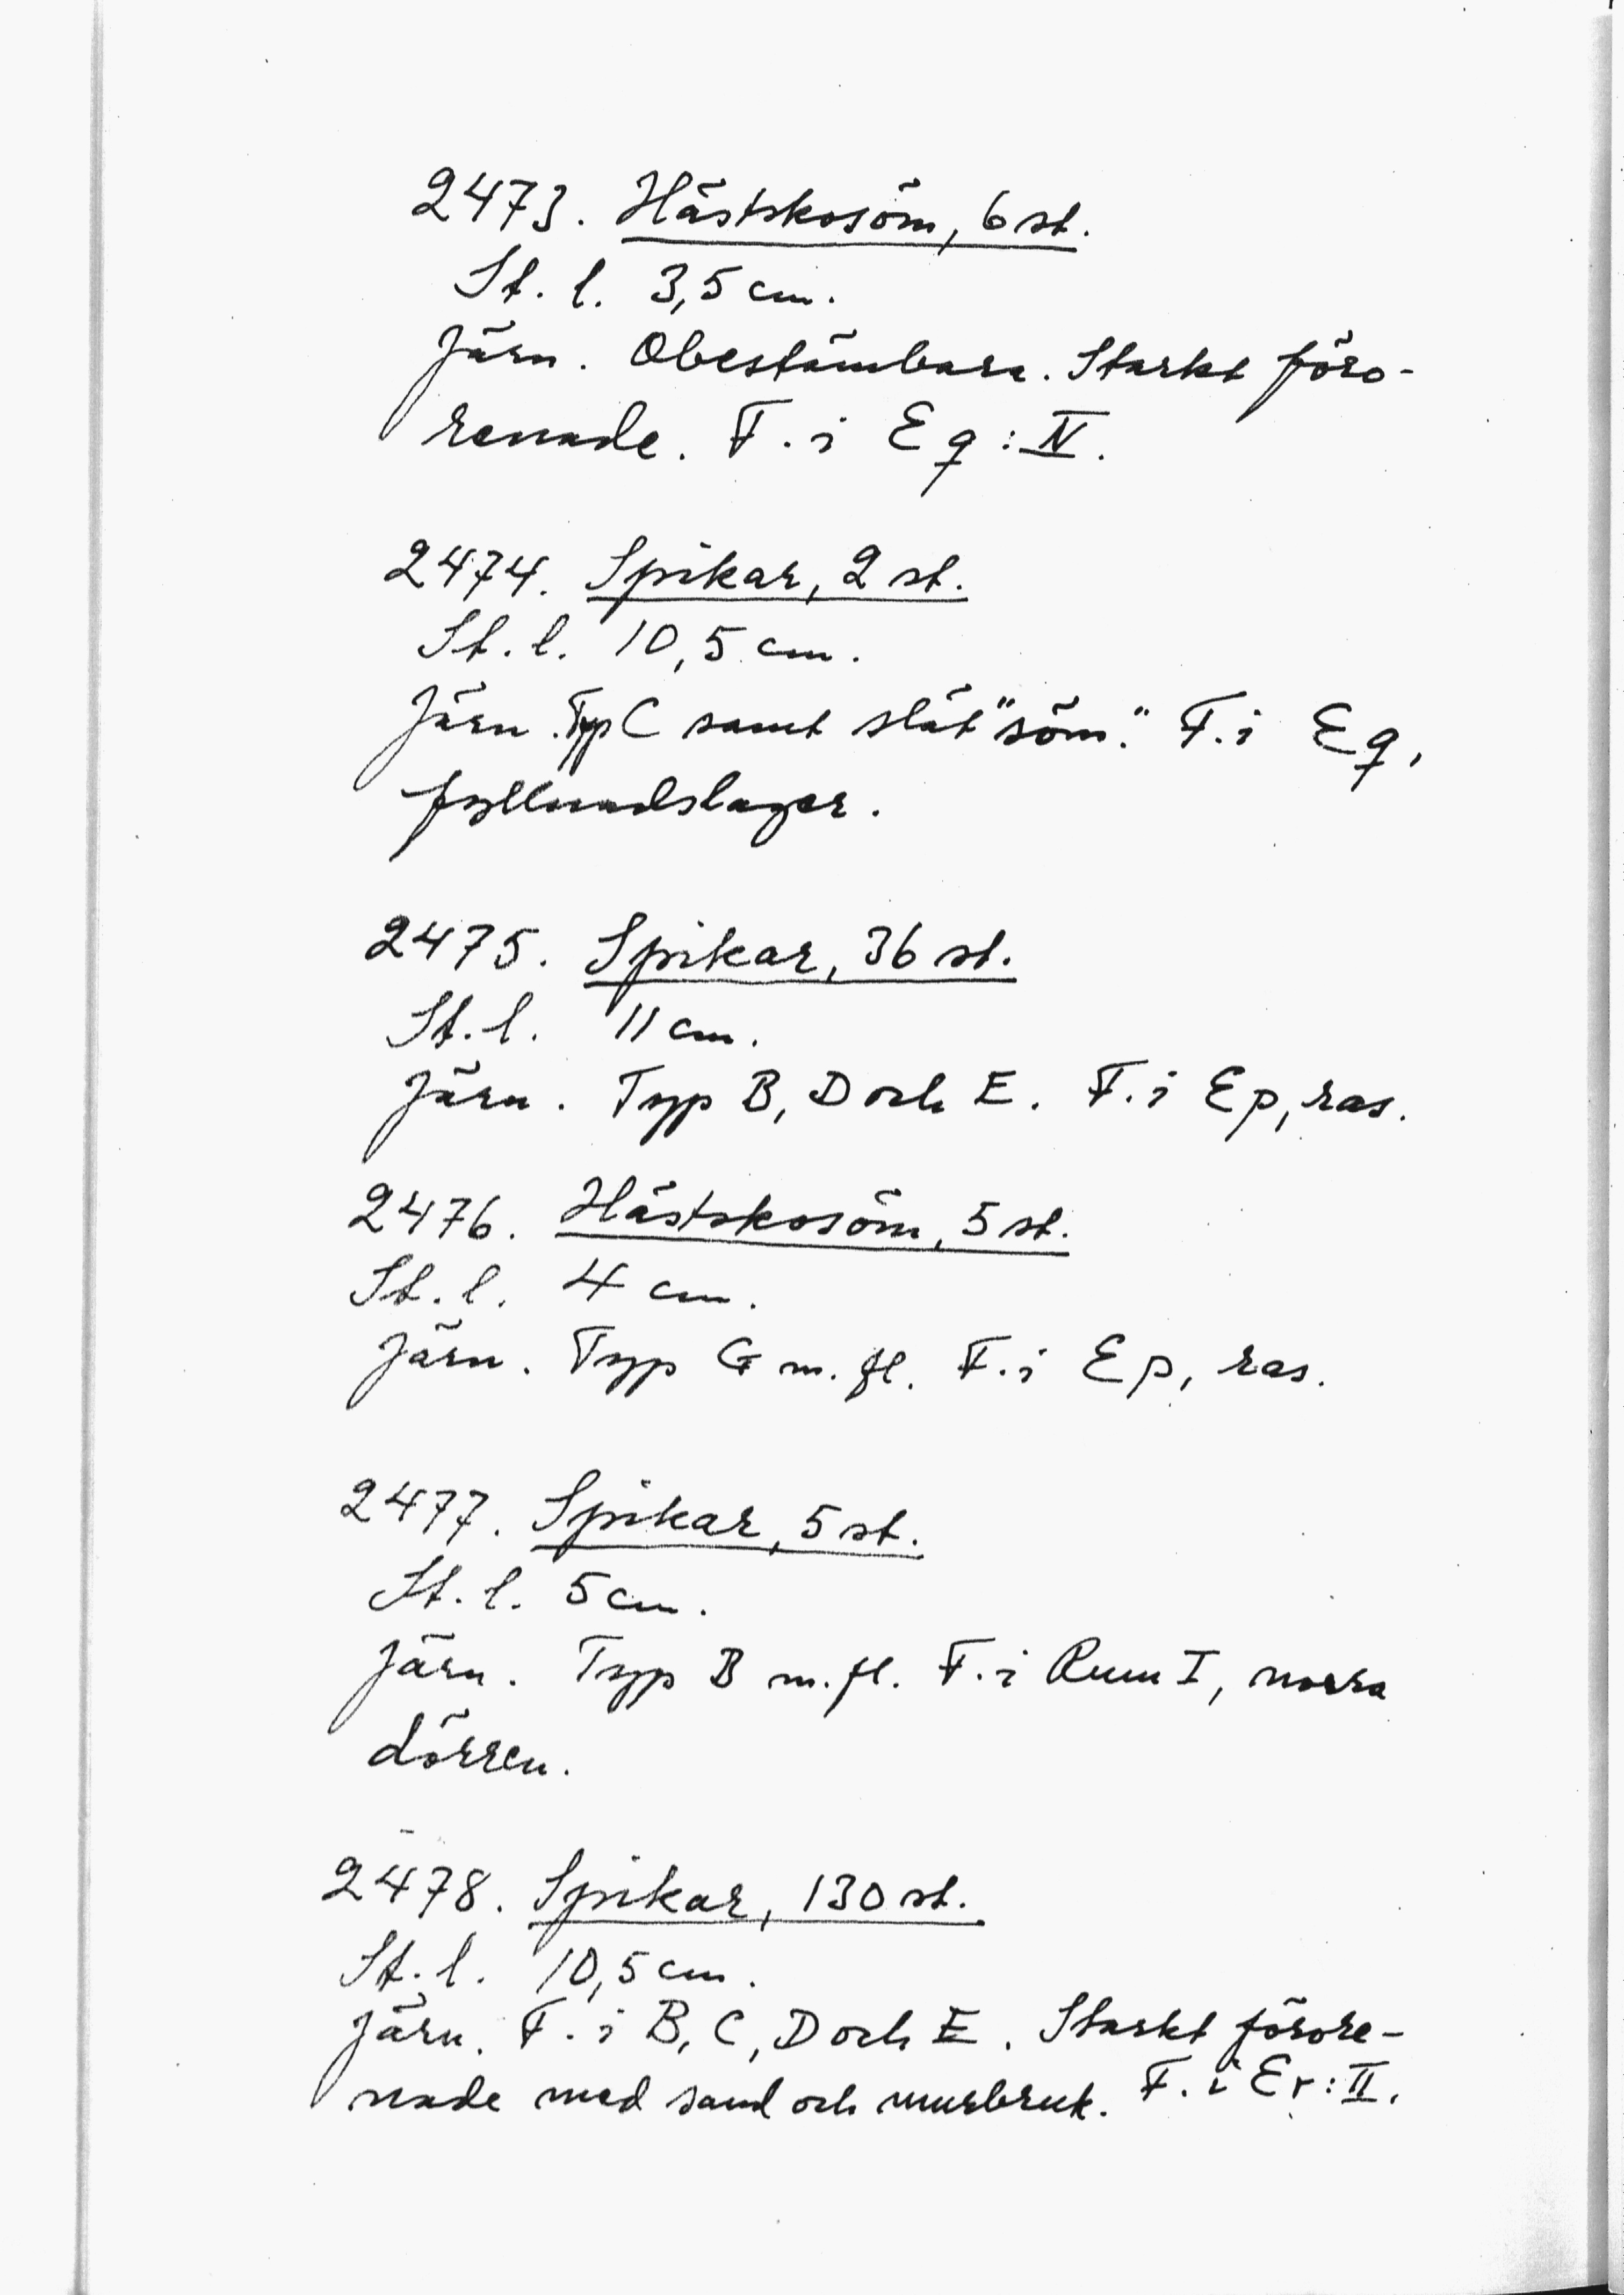 2473. Hästskosöm, 6 st.
St. l. 3,5 cm.
Järn. Obestämbara. Starkt föro-
renade. F. i Eq: IV.
2474. Spikar, 2 st.
St. l. 10,5 cm.
Järn. Typ C samt slät "söm". F. i Eq,
fyllnadslager.
2475. Spikar, 36 st.
St. l. 11 cm.
Järn. Typ B, D och E. F. i Ep, ras.
2476. Hästskosöm, 5 st.
St. l. 4 cm.
Järn. Typ G m. fl. F. i Ep, ras.
2477. Spikar, 5 st.
St. l. 5 cm.
Järn. Typ B m. fl. F. i Rum I, norra
dörren.
2478. Spikar, 130 st.
St. l. 10,5 cm.
Järn. F. i B, C, D och E. Starkt förore-
nade med sand och murbruk. F. i Er: II.